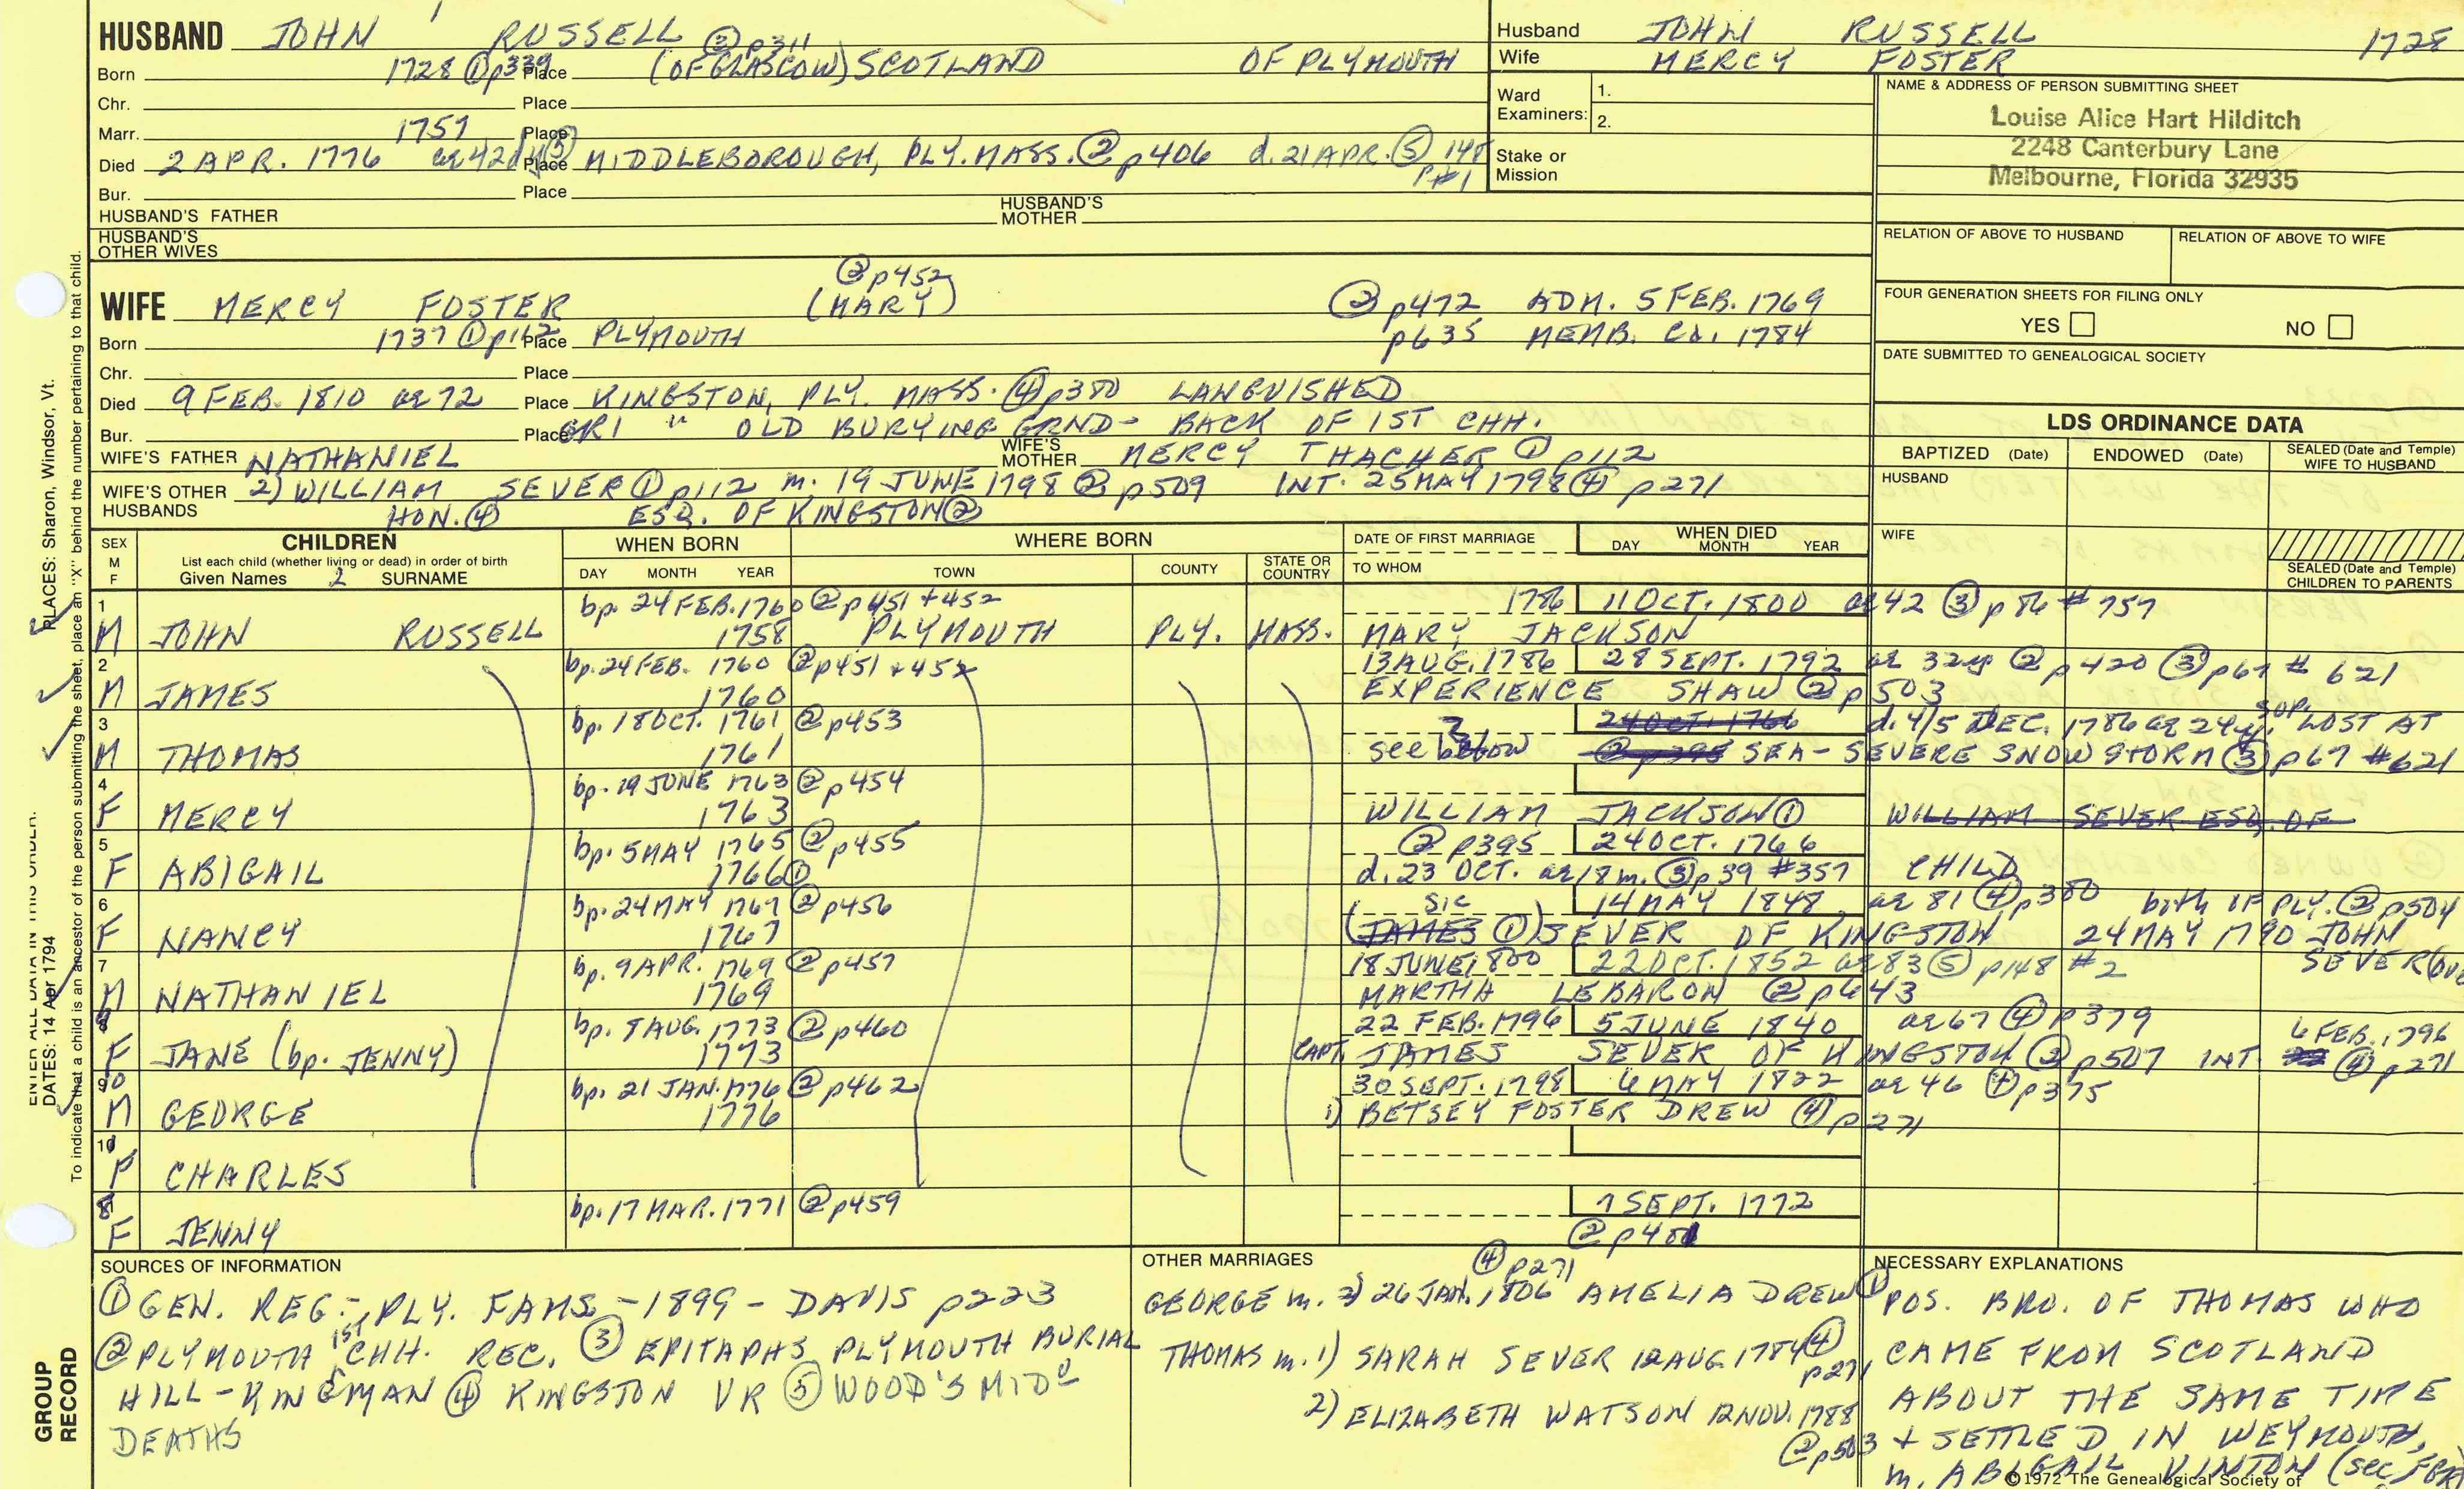 HUSBAND JOHN RUSSELL ② p311
Born 1728 ① p339 Place (OF GLASCOW) SCOTLAND OF PLYMOUTH
Chr. Place
Marr. 1757 Place
Died 2 APR. 1776 ae 42 Place MIDDLEBOROUGH, PLY. MASS. ② p406 d. 21 APR. ⑤ 148
p #1
Bur. Place
HUSBAND'S FATHER HUSBAND'S MOTHER
HUSBAND'S OTHER WIVES
Husband JOHN RUSSELL 1728
Wife MERCY FOSTER
Ward Examiners: 1.
2.
Stake or Mission
NAME & ADDRESS OF PERSON SUBMITTING SHEET
Louise Alice Hart Hilditch
2248 Canterbury Lane
Melbourne, Florida 32935
RELATION OF ABOVE TO HUSBAND RELATION OF ABOVE TO WIFE
FOUR GENERATION SHEETS FOR FILING ONLY
YES NO
DATE SUBMITTED TO GENEALOGICAL SOCIETY
② p452
WIFE MERCY FOSTER (MARY) ② p472 ADM. 5 FEB. 1769
Born 1737 ① p112 Place PLYMOUTH p635 MEMB. CH. 1784
Chr. Place
Died 9 FEB. 1810 ae 72 Place KINGSTON, PLY. MASS. ④ p380 LANGUISHED
Bur. Place GR1 " OLD BURYING GRND- BACK OF 1ST CHH.
WIFE'S FATHER NATHANIEL WIFE'S MOTHER MERCY THACHER ① p112
WIFE'S OTHER HUSBANDS 2) WILLIAM SEVER ① p112 m. 19 JUNE 1798 ② p509 INT. 25 MAY 1798 ④ p271
HON. ④ ESQ. OF KINGSTON ②
LDS ORDINANCE DATA
BAPTIZED (Date) ENDOWED (Date) SEALED (Date and Temple) WIFE TO HUSBAND
HUSBAND
WIFE
SEALED (Date and Temple) CHILDREN TO PARENTS
SEX M F CHILDREN WHEN BORN WHERE BORN DATE OF FIRST MARRIAGE WHEN DIED
List each child (whether living or dead) in order of birth DAY MONTH YEAR
Given Names 2 SURNAME DAY MONTH YEAR TOWN COUNTY STATE OR COUNTRY TO WHOM
1 bp. 24 FEB. 1760 ② p451 + 452 1786 11 OCT. 1800 ae 42 ③ p86 # 757
M JOHN RUSSELL 1758 PLYMOUTH PLY. MASS. MARY JACKSON
2 bp. 24 FEB. 1760 ② p451 + 452 13 AUG. 1786 28 SEPT. 1792 ae 32 y ② p420 ③ p67 # 621
M JAMES 1760 EXPERIENCE SHAW ② p503
3 bp. 18 OCT. 1761 ② p453 24 OCT. 1766 d. 4/5 DEC. 1786 ae 24 y. SUP. LOST AT
M THOMAS 1761 see below ② p395 SEA - SEVERE SNOWSTORM ③ p67 #621
4 bp. 19 JUNE 1763 ② p454
F MERCY 1763 WILLIAM JACKSON ① WILLIAM SEVER ESQ. OF
5 bp. 5 MAY 1765 ② p455 ② p395 24 OCT. 1766
F ABIGAIL 1766 ① d. 23 OCT. ae 18 m. ③ p39 #357 CHILD
6 bp. 24 MAY 1767 ② p456 sic 14 MAY 1848 ae 81 ④ p380 both OF PLY. ② p504
F NANCY 1767 (JAMES ①) SEVER OF KINGSTON 24 MAY 1790 JOHN
SEVER
7 bp. 9 APR. 1769 ② p457 18 JUNE 1800 22 OCT. 1852 ae 83 ⑤ p148 #2
M NATHANIEL 1769 MARTHA LEBARON ② p643
9 bp. 8 AUG. 1773 ② p460 22 FEB. 1796 5 JUNE 1840 ae 67 ④ p379 6 FEB. 1796
F JANE (bp. JENNY) 1773 CAPT. JAMES SEVER OF KINGSTON ② p507 INT. ④ p271
10 bp. 21 JAN. 1776 ② p462 30 SEPT. 1798 6 MAY 1822 ae 46 ④ p375
M GEORGE 1776 1) BETSEY FOSTER DREW ④ p271
CHARLES
8 bp. 17 MAR. 1771 ② p459 7 SEPT. 1772
F JENNY ② p401
SOURCES OF INFORMATION
① GEN. REG. - PLY. FAMS - 1899 - DAVIS p223
② PLYMOUTH 1ST CHH. REC. ③ EPITAPHS PLYMOUTH BURIAL
HILL - KINGMAN ④ KINGSTON VR ⑤ WOOD'S MID
DEATHS
OTHER MARRIAGES
④ p271
GEORGE m. 2) 26 JAN. 1806 AMELIA DREW
THOMAS m. 1) SARAH SEVER 12 AUG. 1784 ④ p271
2) ELIZABETH WATSON 12 NOV. 1788
② p503
NECESSARY EXPLANATIONS
① POS. BRO. OF THOMAS WHO
CAME FROM SCOTLAND
ABOUT THE SAME TIME
+ SETTLED IN WEYMOUTH,
m. ABIGAIL VINTON (see
©1972 The Genealogical Society of
ENTER ALL DATA IN THIS ORDER:
DATES: 14 Apr 1794
PLACES: Sharon, Windsor, Vt.
To indicate that a child is an ancestor of the person submitting the sheet, place an "X" behind the number pertaining to that child.
GROUP RECORD